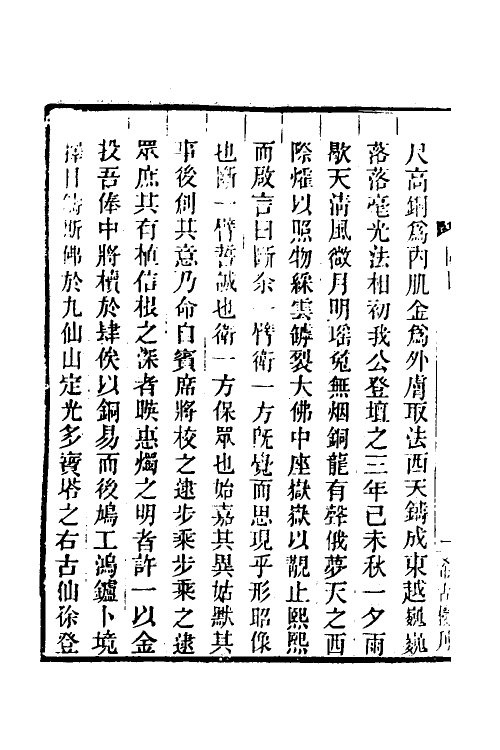 尺高銅爲內肌金爲外膚取法西天鑄成東越巍巍
落落毫光法相初我公登壇之三年己未秋一夕雨
歇天清風微月明瑤兔無烟銅龍有聲俄夢天之西
際燿以照物綵雲罅裂大佛中座嶽嶽以覿止熙熙
而啟言曰斷余一臂衛一方旣覺而思現乎形昭像
也斷一臂誓誠也衛一方保眾也始嘉其異姑默其
事後創其意乃命自賓席將校之逮步乘步乘之逮
眾庶其有植信根之深者暎惠燭之明者許一以金
投吾俸中將櫝於肆俟以銅易而後鳩工鴻鑪卜境
擇日鑄斯佛於九仙山定光多寶塔之右古仙徐登